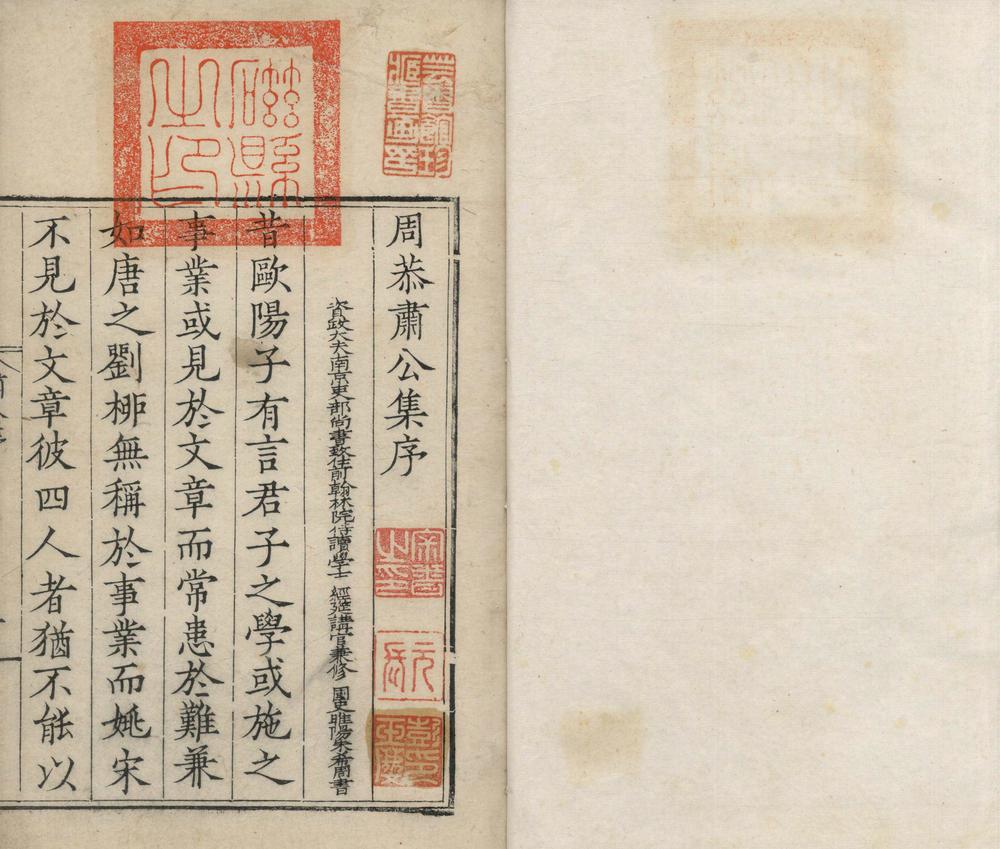 周恭肅公集序
資政大夫南京吏部尚書致仕前翰林院侍讀學士 經筵講官兼修 國史睢陽朱希周書
昔歐陽子有言君子之學或施之
事業或見於文章而常患於難兼
如唐之劉栁無稱於事業而姚宋
不見於文章彼四人者猶不能以
磁縣之印